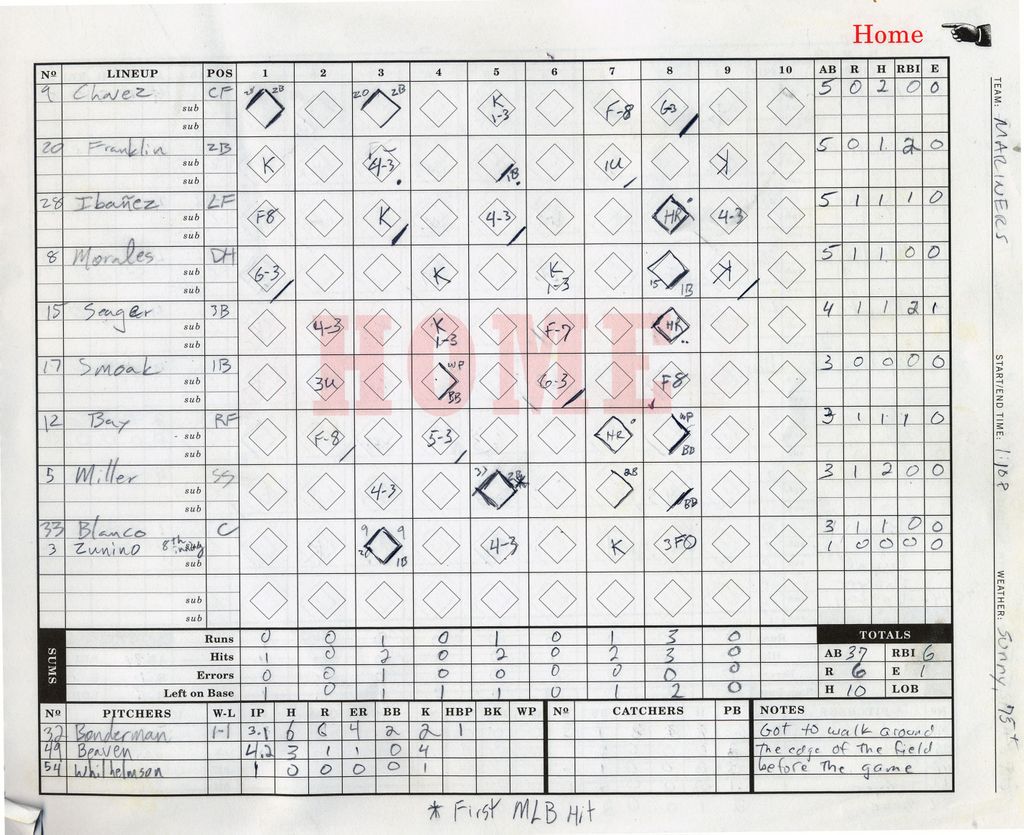 Home
Nº LINEUP POS 1 2 3 4 5 6 7 8 9 10 AB R H RBI E
9 Chavez CF 2B 20 2B K 1-3 F-8 G-3 5 0 2 0 0
sub
sub
20 Franklin 2B K 4-3 1B 1U K 5 0 1 2 0
sub
sub
28 Ibañez LF F8 K 4-3 HR 4-3 5 1 1 1 0
sub
sub
8 Morales DH 6-3 K K 1-3 15 1B K 5 1 1 0 0
sub
sub
15 Seager 3B 4-3 K 1-3 F-7 HR 4 1 1 2 1
sub
sub
17 Smoak 1B 3U WP BB 6-3 F8 3 0 0 0 0
sub
sub
12 Bay RF F-8 5-3 HR WP BB 3 1 1 1 0
sub
sub
5 Miller SS 4-3 2B 2B BB 3 1 2 0 0
sub
sub
33 Blanco C 9 9 20 1B 4-3 K 3FO 3 1 1 0 0
3 Zunino 8th inning 1 0 0 0 0
sub
sub
sub
HOME
SUMS
Runs 0 0 1 0 1 0 1 3 0
Hits 1 0 2 0 2 0 2 3 0
Errors 0 0 1 0 0 0 0 0 0
Left on Base 1 0 1 1 1 0 1 2 0
TOTALS
AB 37 RBI 6
R 6 E 1
H 10 LOB
Nº PITCHERS W-L IP H R ER BB K HBP BK WP
32 Bonderman 1-1 3.1 6 6 4 2 2 1
49 Beaven 4.2 3 1 1 0 4
54 Whilhelmson 1 0 0 0 0 1
Nº CATCHERS PB
NOTES
Got to walk around
The edge of the field
before the game
* First MLB Hit
TEAM: MARINERS
START/END TIME: 1:10P
WEATHER: Sunny, 75°